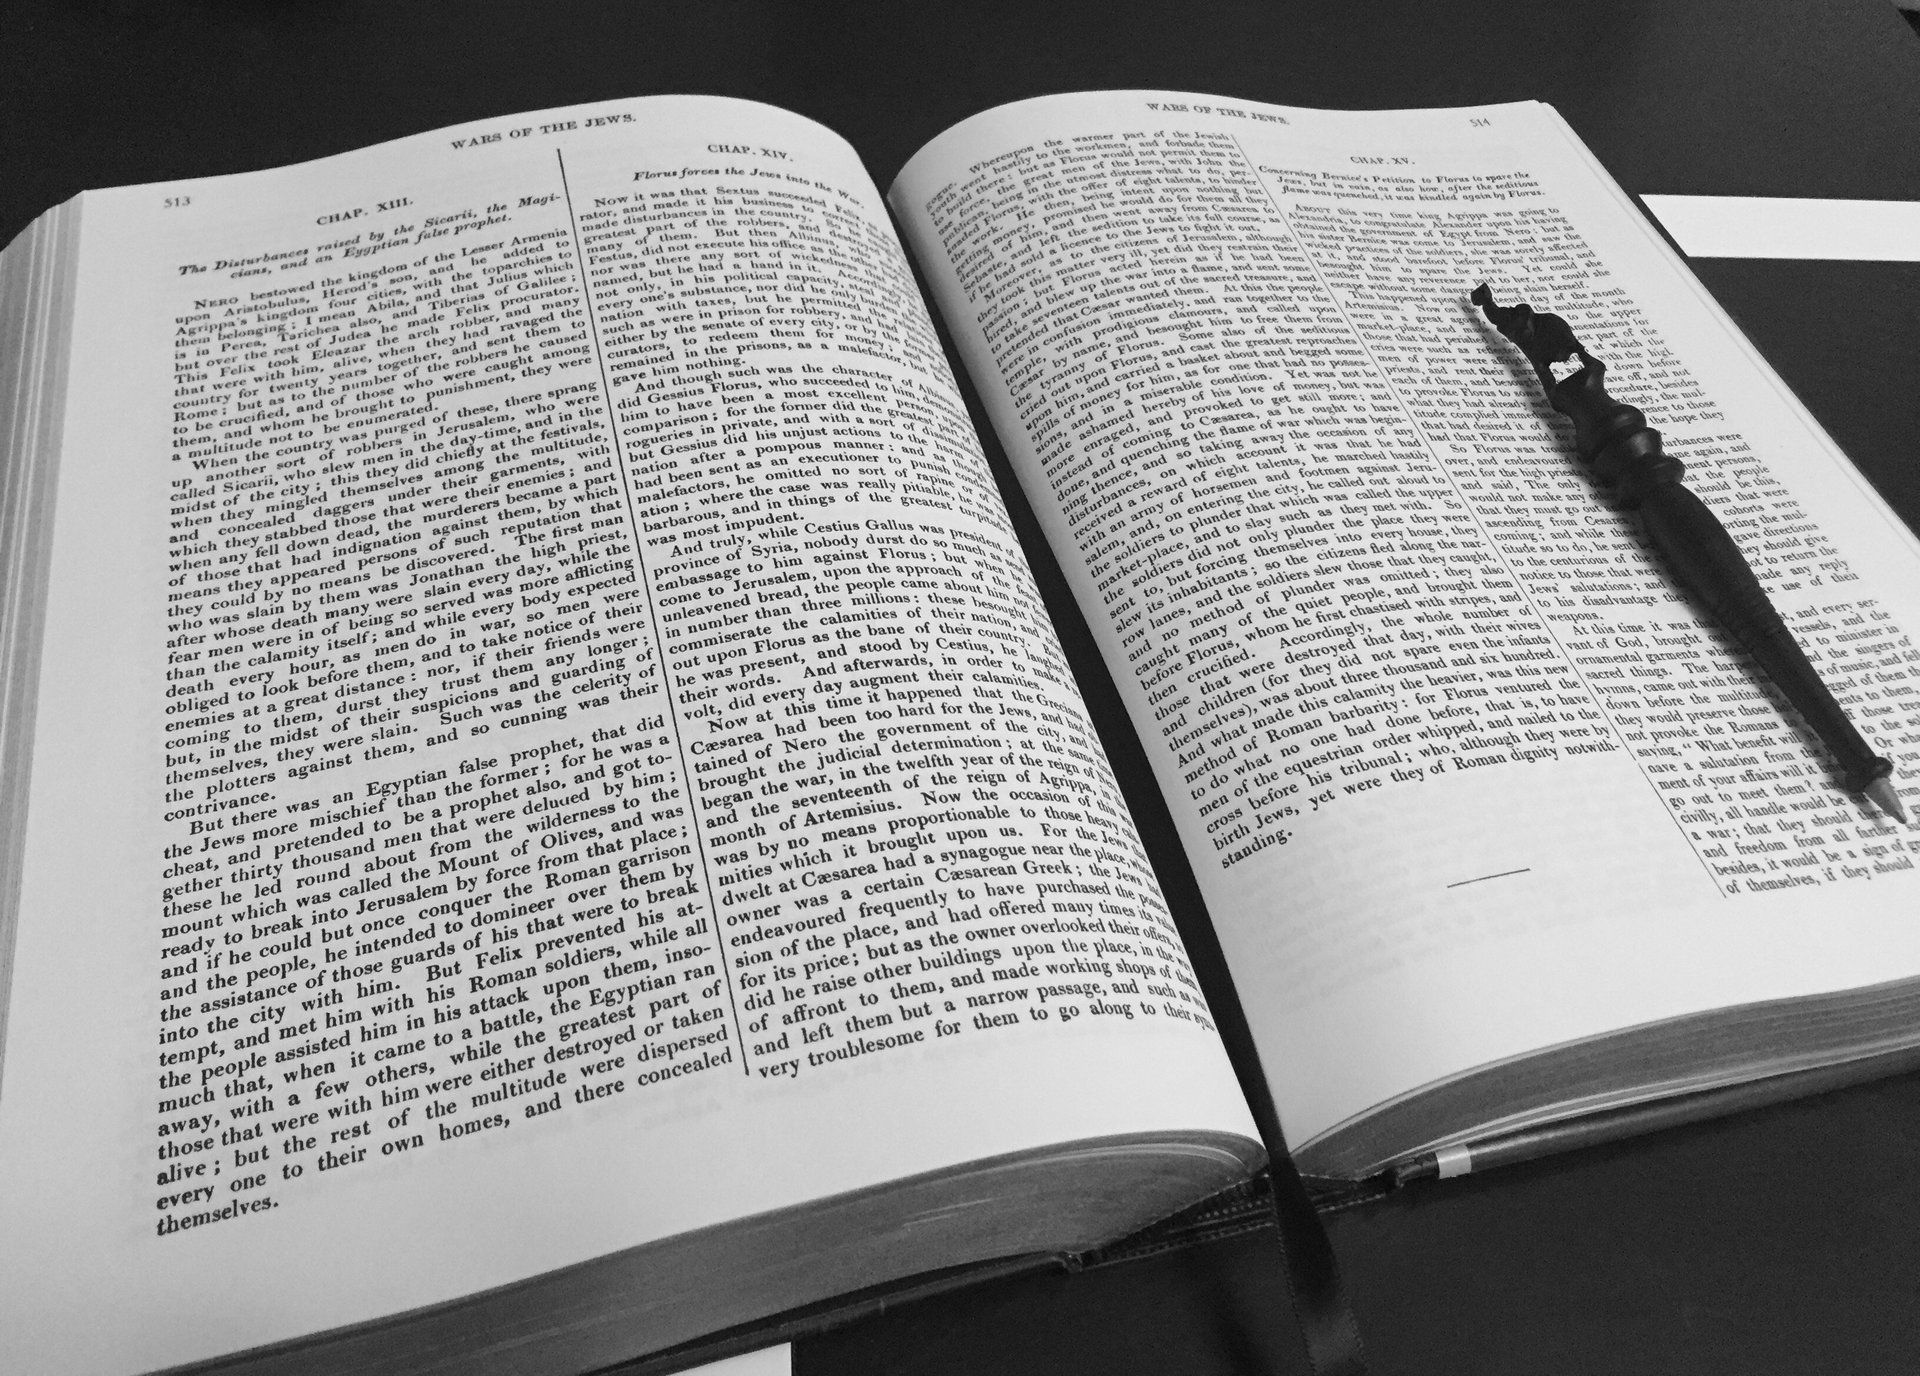 WARS OF THE JEWS.
513
CHAP. XIII.
The Disturbances raised by the Sicarii, the Magi-
cians, and an Egyptian false prophet.
NERO bestowed the kingdom of the Lesser Armenia
upon Aristobulus, Herod's son, and he added to
Agrippa's kingdom four cities, with the toparchies to
them belonging; I mean Abila, and that Julius which
is in Perea, Tarichea also, and Tiberias of Galilee;
but over the rest of Judea he made Felix procurator.
This Felix took Eleazar the arch robber, and many
that were with him, alive, when they had ravaged the
country for twenty years together, and sent them to
Rome; but as to the number of the robbers he caused
to be crucified, and of those who were caught among
them, and whom he brought to punishment, they were
a multitude not to be enumerated.
When the country was purged of these, there sprang
up another sort of robbers in Jerusalem, who were
called Sicarii, who slew men in the day-time, and in the
midst of the city; this they did chiefly at the festivals,
when they mingled themselves among the multitude,
and concealed daggers under their garments, with
which they stabbed those that were their enemies; and
when any fell down dead, the murderers became a part
of those that had indignation against them, by which
means they appeared persons of such reputation that
they could by no means be discovered. The first man
who was slain by them was Jonathan the high priest,
after whose death many were slain every day, while the
fear men were in of being so served was more afflicting
than the calamity itself; and while every body expected
death every hour, as men do in war, so men were
obliged to look before them, and to take notice of their
enemies at a great distance: nor, if their friends were
coming to them, durst they trust them any longer;
but, in the midst of their suspicions and guarding of
themselves, they were slain. Such was the celerity of
the plotters against them, and so cunning was their
contrivance.
But there was an Egyptian false prophet, that did
the Jews more mischief than the former; for he was a
cheat, and pretended to be a prophet also, and got to-
gether thirty thousand men that were deluded by him;
these he led round about from the wilderness to the
mount which was called the Mount of Olives, and was
ready to break into Jerusalem by force from that place;
and if he could but once conquer the Roman garrison
and the people, he intended to domineer over them by
the assistance of those guards of his that were to break
into the city with him. But Felix prevented his at-
tempt, and met him with his Roman soldiers, while all
the people assisted him in his attack upon them, inso-
much that, when it came to a battle, the Egyptian ran
away, with a few others, while the greatest part of
those that were with him were either destroyed or taken
alive; but the rest of the multitude were dispersed
every one to their own homes, and there concealed
themselves.
CHAP. XIV.
Florus forces the Jews into the War.
Now it was that Sextus succeeded Felix
rator, and made it his business to correct
made disturbances in the country. So he
greatest part of the robbers, and destroyed
many of them. But then Albinus, who
Festus, did not execute his office as the other
nor was there any sort of wickedness that
named, but he had a hand in it. Accordingly
not only, in his political capacity, steal and
every one's substance, nor did he only burden the
nation with taxes, but he permitted the relations
such as were in prison for robbery, and had
either by the senate of every city, or by the former
curators, to redeem them for money; and
remained in the prisons, as a malefactor, but
gave him nothing.
And though such was the character of Albinus,
did Gessius Florus, who succeeded to him, demonstrate
him to have been a most excellent person, upon
comparison; for the former did the greatest part of his
rogueries in private, and with a sort of dissimulation;
but Gessius did his unjust actions to the harm of the
nation after a pompous manner; and as though he
had been sent as an executioner to punish condemned
malefactors, he omitted no sort of rapine or of
ation; where the case was really pitiable, he was
barbarous, and in things of the greatest turpitude
was most impudent.
And truly, while Cestius Gallus was president of
province of Syria, nobody durst do so much as send
embassage to him against Florus; but when he was
come to Jerusalem, upon the approach of the feast
unleavened bread, the people came about him not fewer
in number than three millions: these besought him
commiserate the calamities of their nation, and
out upon Florus as the bane of their country. But
he was present, and stood by Cestius, he laughed
their words. And afterwards, in order to make a
volt, did every day augment their calamities.
Now at this time it happened that the Grecians
Cæsarea had been too hard for the Jews, and had
tained of Nero the government of the city, and
brought the judicial determination; at the same
began the war, in the twelfth year of the reign of Nero,
and the seventeenth of the reign of Agrippa, in the
month of Artemisius. Now the occasion of this war
was by no means proportionable to those heavy
mities which it brought upon us. For the Jews that
dwelt at Cæsarea had a synagogue near the place, whose
owner was a certain Cæsarean Greek; the Jews had
endeavoured frequently to have purchased the posses-
sion of the place, and had offered many times its value
for its price; but as the owner overlooked their offers,
did he raise other buildings upon the place, in the way
of affront to them, and made working shops of them,
and left them but a narrow passage, and such as was
very troublesome for them to go along to their
WARS OF THE JEWS.
514
gogue. Whereupon the warmer part of the Jewish
youth went hastily to the workmen, and forbade them
to build there; but as Florus would not permit them to
use force, the great men of the Jews, with John the
publican, being in the utmost distress what to do, per-
suaded Florus, with the offer of eight talents, to hinder
the work. He then, being intent upon nothing but
getting money, promised he would do for them all they
desired of him, and then went away from Cæsarea to
Sebaste, and left the sedition to take its full course, as
if he had sold a licence to the Jews to fight it out.
Moreover, as to the citizens of Jerusalem, although
they took this matter very ill, yet did they restrain their
passion; but Florus acted herein as if he had been
hired, and blew up the war into a flame, and sent some
to take seventeen talents out of the sacred treasure, and
pretended that Cæsar wanted them. At this the people
were in confusion immediately, and ran together to the
temple, with prodigious clamours, and called upon
Cæsar by name, and besought him to free them from
the tyranny of Florus. Some also of the seditious
cried out upon Florus, and cast the greatest reproaches
upon him, and carried a basket about and begged some
spills of money for him, as for one that had no posses-
sions, and in a miserable condition. Yet was not he
made ashamed hereby of his love of money, but was
more enraged, and provoked to get still more; and
instead of coming to Cæsarea, as he ought to have
done, and quenching the flame of war which was begin-
ning thence, and so taking away the occasion of any
disturbances, on which account it was that he had
received a reward of eight talents, he marched hastily
with an army of horsemen and footmen against Jeru-
salem, and, on entering the city, he called out aloud to
the soldiers to plunder that which was called the upper
market-place, and to slay such as they met with. So
the soldiers did not only plunder the place they were
sent to, but forcing themselves into every house, they
slew its inhabitants; so the citizens fled along the nar-
row lanes, and the soldiers slew those that they caught,
and no method of plunder was omitted; they also
caught many of the quiet people, and brought them
before Florus, whom he first chastised with stripes, and
then crucified. Accordingly, the whole number of
those that were destroyed that day, with their wives
and children (for they did not spare even the infants
themselves), was about three thousand and six hundred.
And what made this calamity the heavier, was this new
method of Roman barbarity: for Florus ventured the
to do what no one had done before, that is, to have
men of the equestrian order whipped, and nailed to the
cross before his tribunal; who, although they were by
birth Jews, yet were they of Roman dignity notwith-
standing.
CHAP. XV.
Concerning Bernice's Petition to Florus to spare the
Jews, but in vain, as also how, after the seditious
flame was quenched, it was kindled again by Florus.
ABOUT this very time king Agrippa was going to
Alexandria, to congratulate Alexander upon his having
obtained the government of Egypt from Nero; but as
his sister Bernice was come to Jerusalem, and saw the
wicked practices of the soldiers, she was sorely affected
at it, and stood barefoot before Florus' tribunal, and
besought him to spare the Jews. Yet could she
neither have any reverence paid to her, nor could she
escape without some danger of being slain herself.
This happened upon day of the month
Artemisius. Now on the multitude, who
were in a great agony, to the upper
market-place, and
those that had perished at which the
cries were such as reflected
men of power were affrighted
priests, and rent their garments
each of them, and besought and not
to provoke Florus to some procedure, besides
what they had already the mul-
titude complied immediately to those
that had desired it of the hope they
had that Florus would do
So Florus was troubled disturbances were
over, and endeavoured again, and
sent for the high priests persons,
and said, The only the people
would not make any should be this,
that they must go out soldiers that were
ascending from Cesarea cohorts were
coming; and while these the mul-
titude so to do, he sent gave directions
to the centurions of the they should give
notice to those that were not to return the
Jews' salutations; and made any reply
to his disadvantage they use of their
weapons.
At this time it was that and every ser-
vant of God, brought out vessels, and the
ornamental garments wherein to minister in
sacred things. The harpers and the singers of
hymns, came out with their of music, and fell
down before the multitude of them that
they would preserve those to them,
not provoke the Romans those
saying, “What benefit will
have a salutation from
ment of your affairs will it
go out to meet them? and
civilly, all handle would be
a war; that they should
and freedom from all farther
besides, it would be a sign of
of themselves, if they should